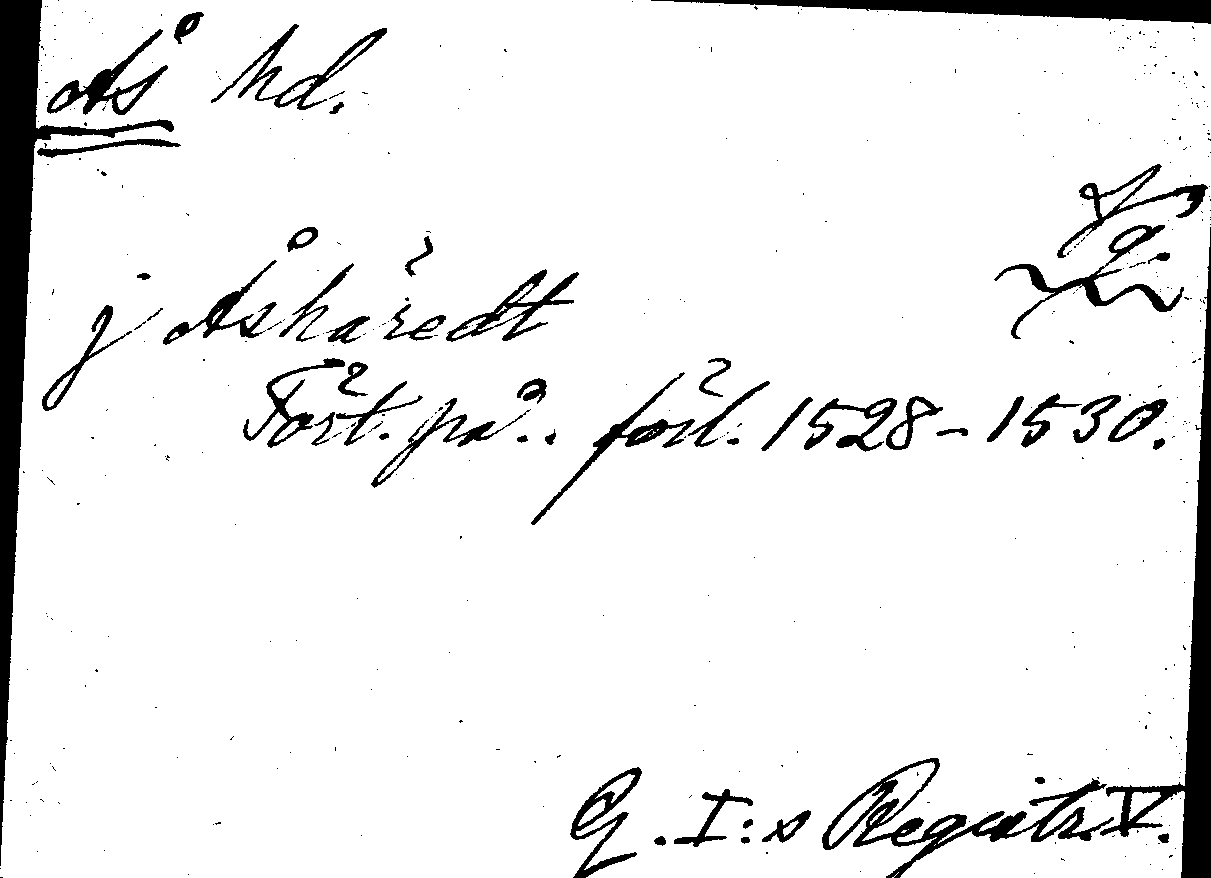 Ås hd.
Vg.
j Åshäredt
Fört. på.. förl. 1528-1530.
G. I:s Registr. V.